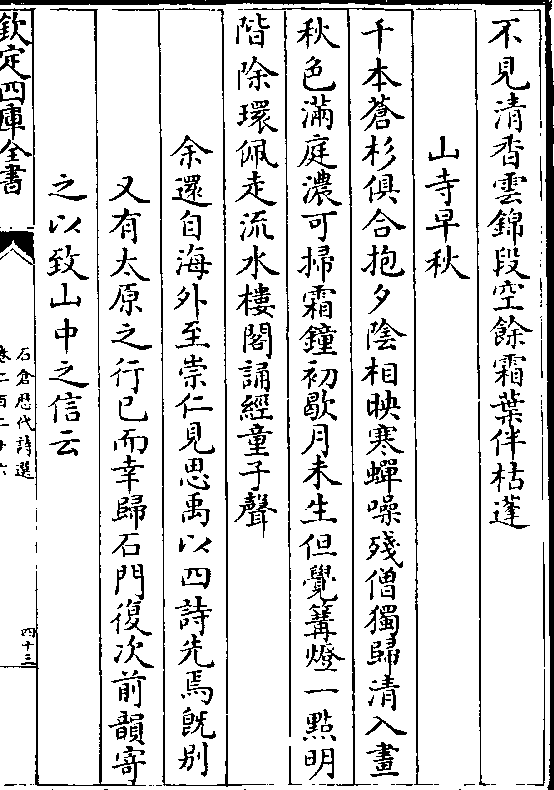 不見清香雲錦段空餘霜葉伴枯蓬
山寺早秋
千本蒼杉俱合抱夕陰相映寒蟬噪殘僧獨歸清入畫
秋色滿庭濃可掃霜鐘初歇月未生但覺篝燈一點明
階除環佩走流水樓閣誦經童子聲
余還自海外至崇仁見思禹以四詩先焉旣别
又有太原之行已而幸歸石門復次前韻寄
之以致山中之信云
欽定四庫全書
石倉歴代詩選
卷二百二十六
四十三